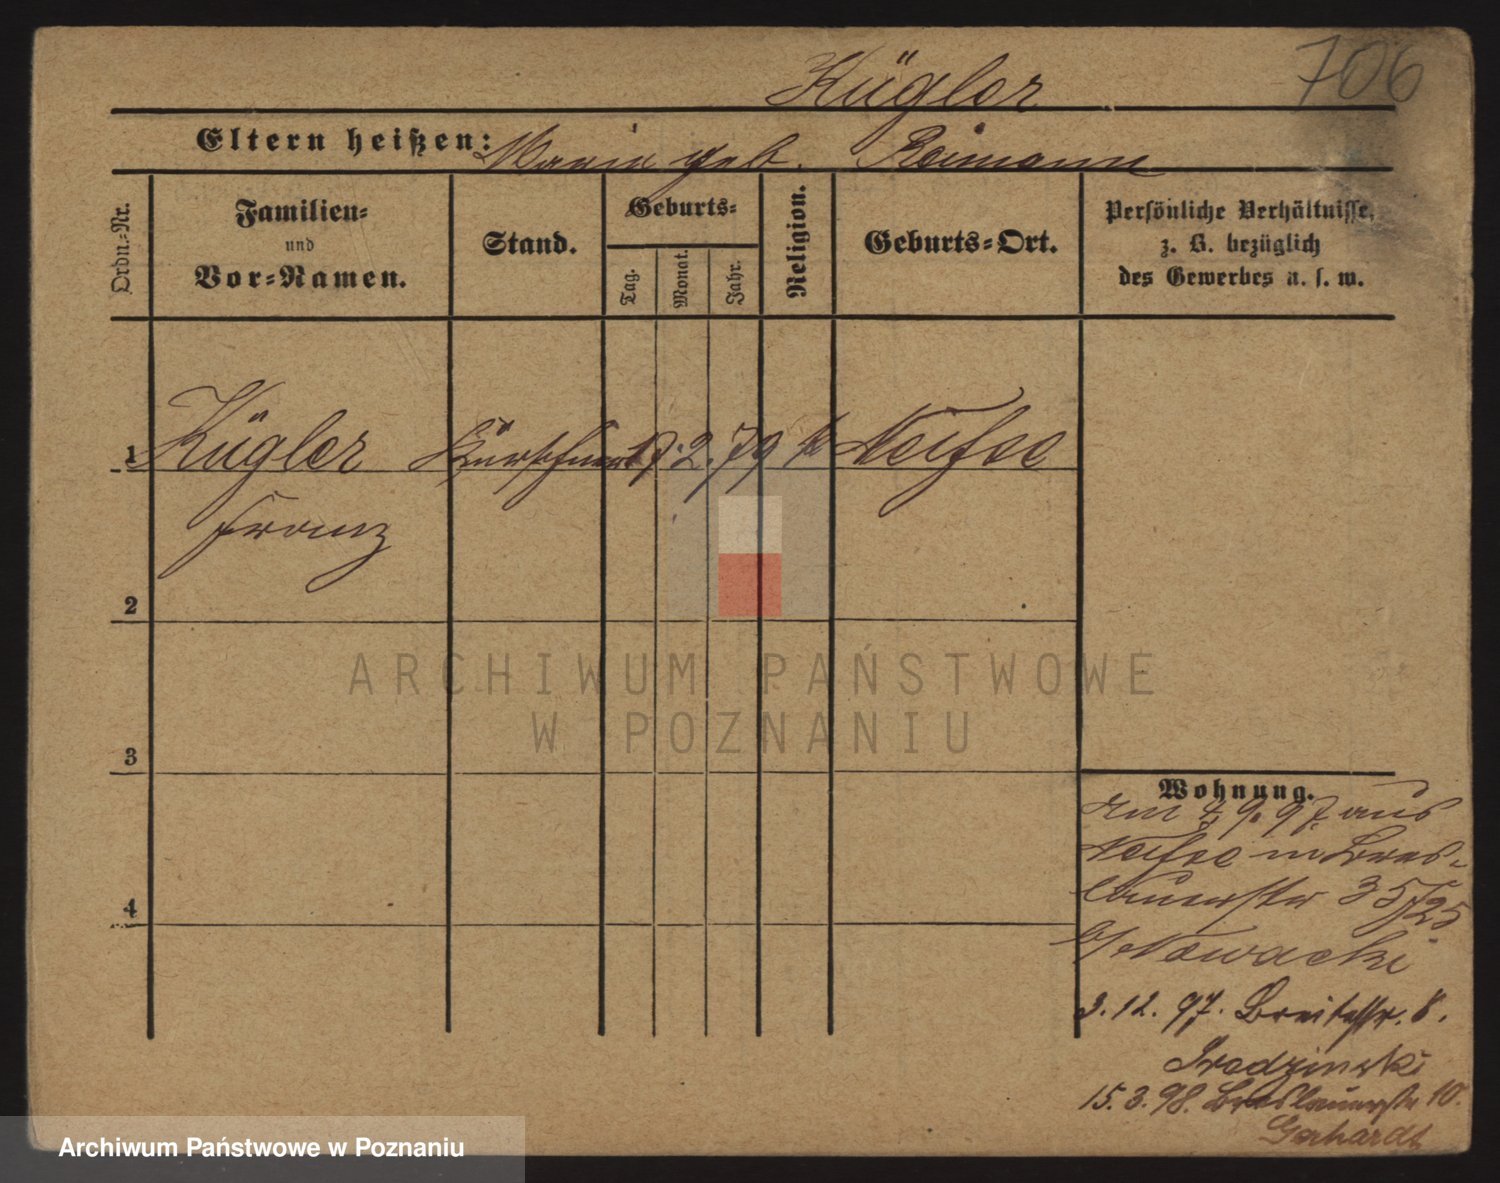 Kügler
706
Eltern heißen: Maria geb. Reimann
Ordn.-Nr.
Familien-
und
Vor-Namen.
Stand.
Geburts-
Tag.
Monat.
Jahr.
Religion.
Geburts-Ort.
Persönliche Verhältnisse,
z. B. bezüglich
des Gewerbes u. s. w.
1 Kügler Kürschner 17. 2. 79 k Neisse
Franz
2
3
4
ARCHIWUM PAŃSTWOWE
W POZNANIU
Wohnung.
Am 4. 9. 97. aus
Neisse in Bres-
lauerstr 35/25
b/ Nowacki
3. 12. 97. Breitestr. 8.
15. 3. 98. Breslauerstr 10.
Gerhardt
Archiwum Państwowe w Poznaniu